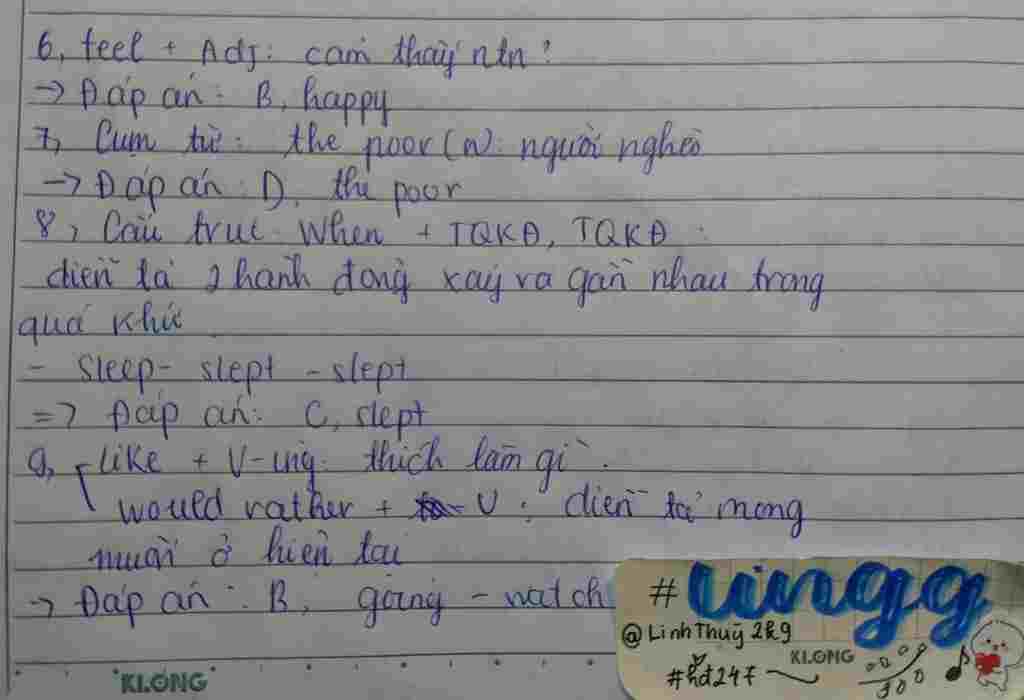 6, feel + Adj: cảm thấy ntn?
→ Đáp án: B, happy
7, Cụm từ: the poor (n): người nghèo
→ Đáp án: D, the poor
8, Cấu trúc When + TQKĐ, TQKĐ:
diễn tả 2 hành động xảy ra gần nhau trong
quá khứ
- sleep - slept - slept
=> Đáp án: C, slept
9, Like + V-ing: thích làm gì.
would rather + V: diễn tả mong
muốn ở hiện tại
→ Đáp án: B, going - watch
#lingg
@LinhThuỳ2k9
#hđ247
KLONG
KLONG